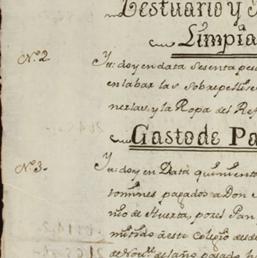 Vestuario y
Limpia
Nº 2. Yt: doy en data Sesenta pes
en labar las Sobrepellise
nerlas, y la Ropa del Ref
Gasto de Pa
Nº 3. Yt: doy en Data quinient
tomines pagados a Don
nio de Huerta, por el Pan
este Colegio desde
de Nov.e del año pasado h